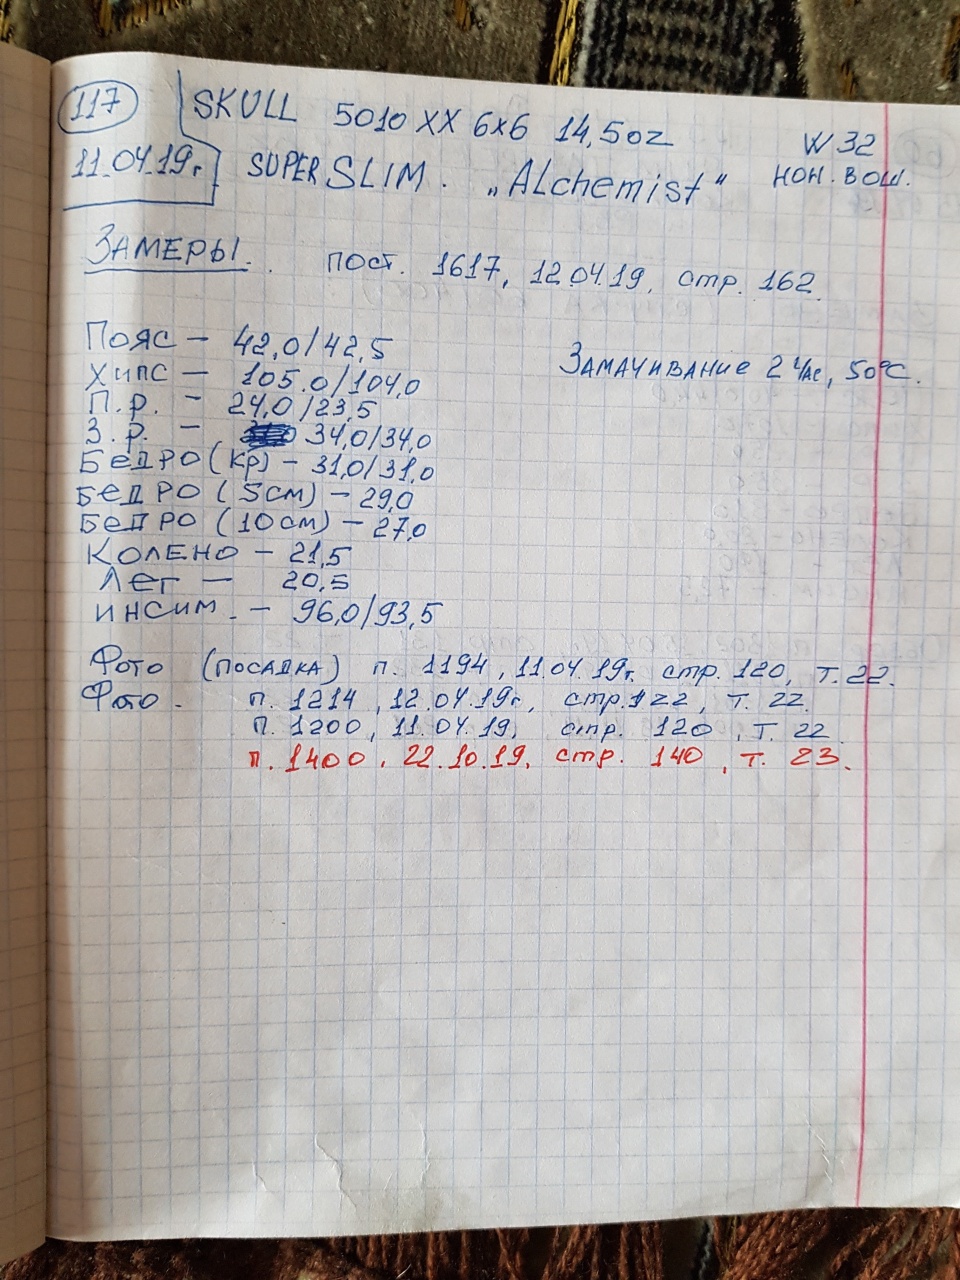 117 SKULL 5010 XX 6x6 14,5oz W 32
11.04.19г SUPER SLIM. „ALchemist“ НОН. ВОШ.
ЗАМЕРЫ. пост. 1617, 12.04.19, стр. 162.
Пояс – 42,0/42,5
ЗАМАЧИВАНИЕ 2 ЧАС, 50°С.
ХИПС – 105.0/104,0
П.р. – 24,0/23,5
З.р. – 34,0/34,0
БЕДРО (КР) – 31,0/31,0
БЕДРО (5см) – 29,0
БЕДРО (10см) – 27,0
КОЛЕНО – 21,5
ЛЕГ – 20,5
ИНСИМ. – 96,0/93,5
Фото (ПОСАДКА) п. 1194, 11.04.19г. стр. 120, Т. 22.
Фото. п. 1214, 12.04.19г, стр. 122, Т. 22.
п. 1200, 11.04.19, стр. 120, Т. 22.
п. 1400, 22.10.19, стр. 140, Т. 23.